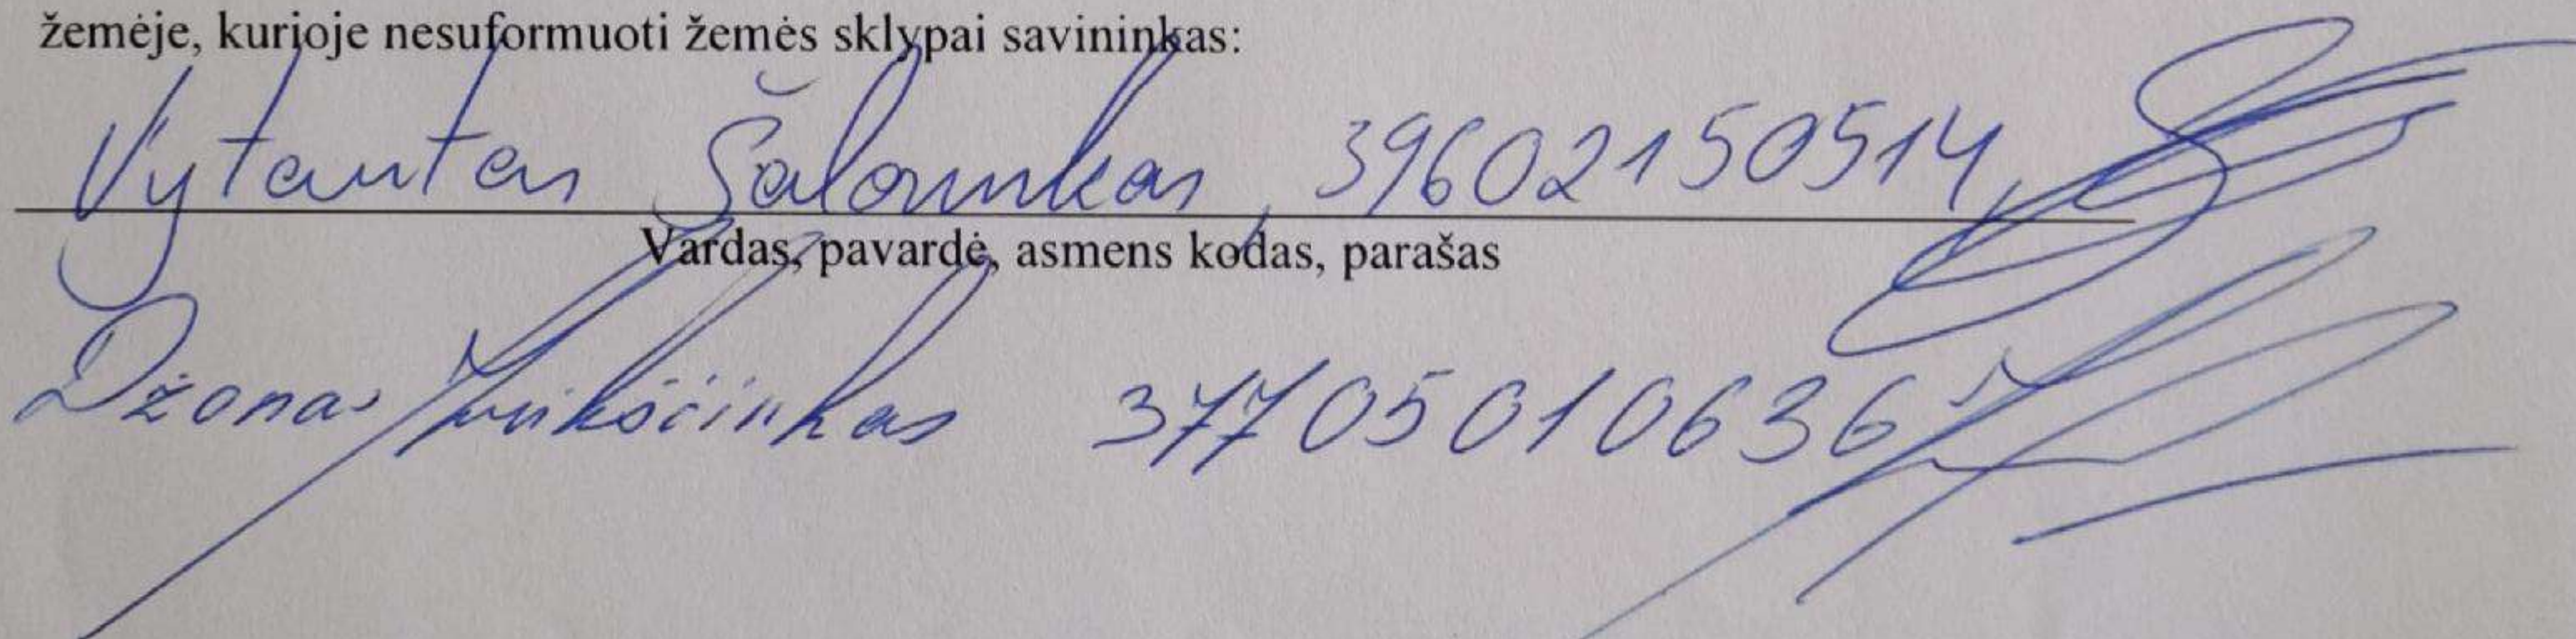 žemėje, kurioje nesuformuoti žemės sklypai savininkas:
Vytautas Šalomskas, 39602150514,
Vardas, pavardė, asmens kodas, parašas
Džonas 37705010636